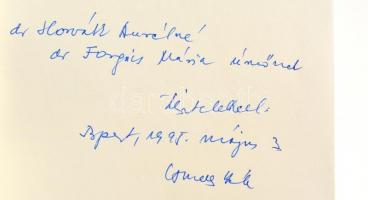 dr Horváth Aurélné
dr Forgács Mária úrnőnek
tisztelettel:
Bpest, 1995. május 3